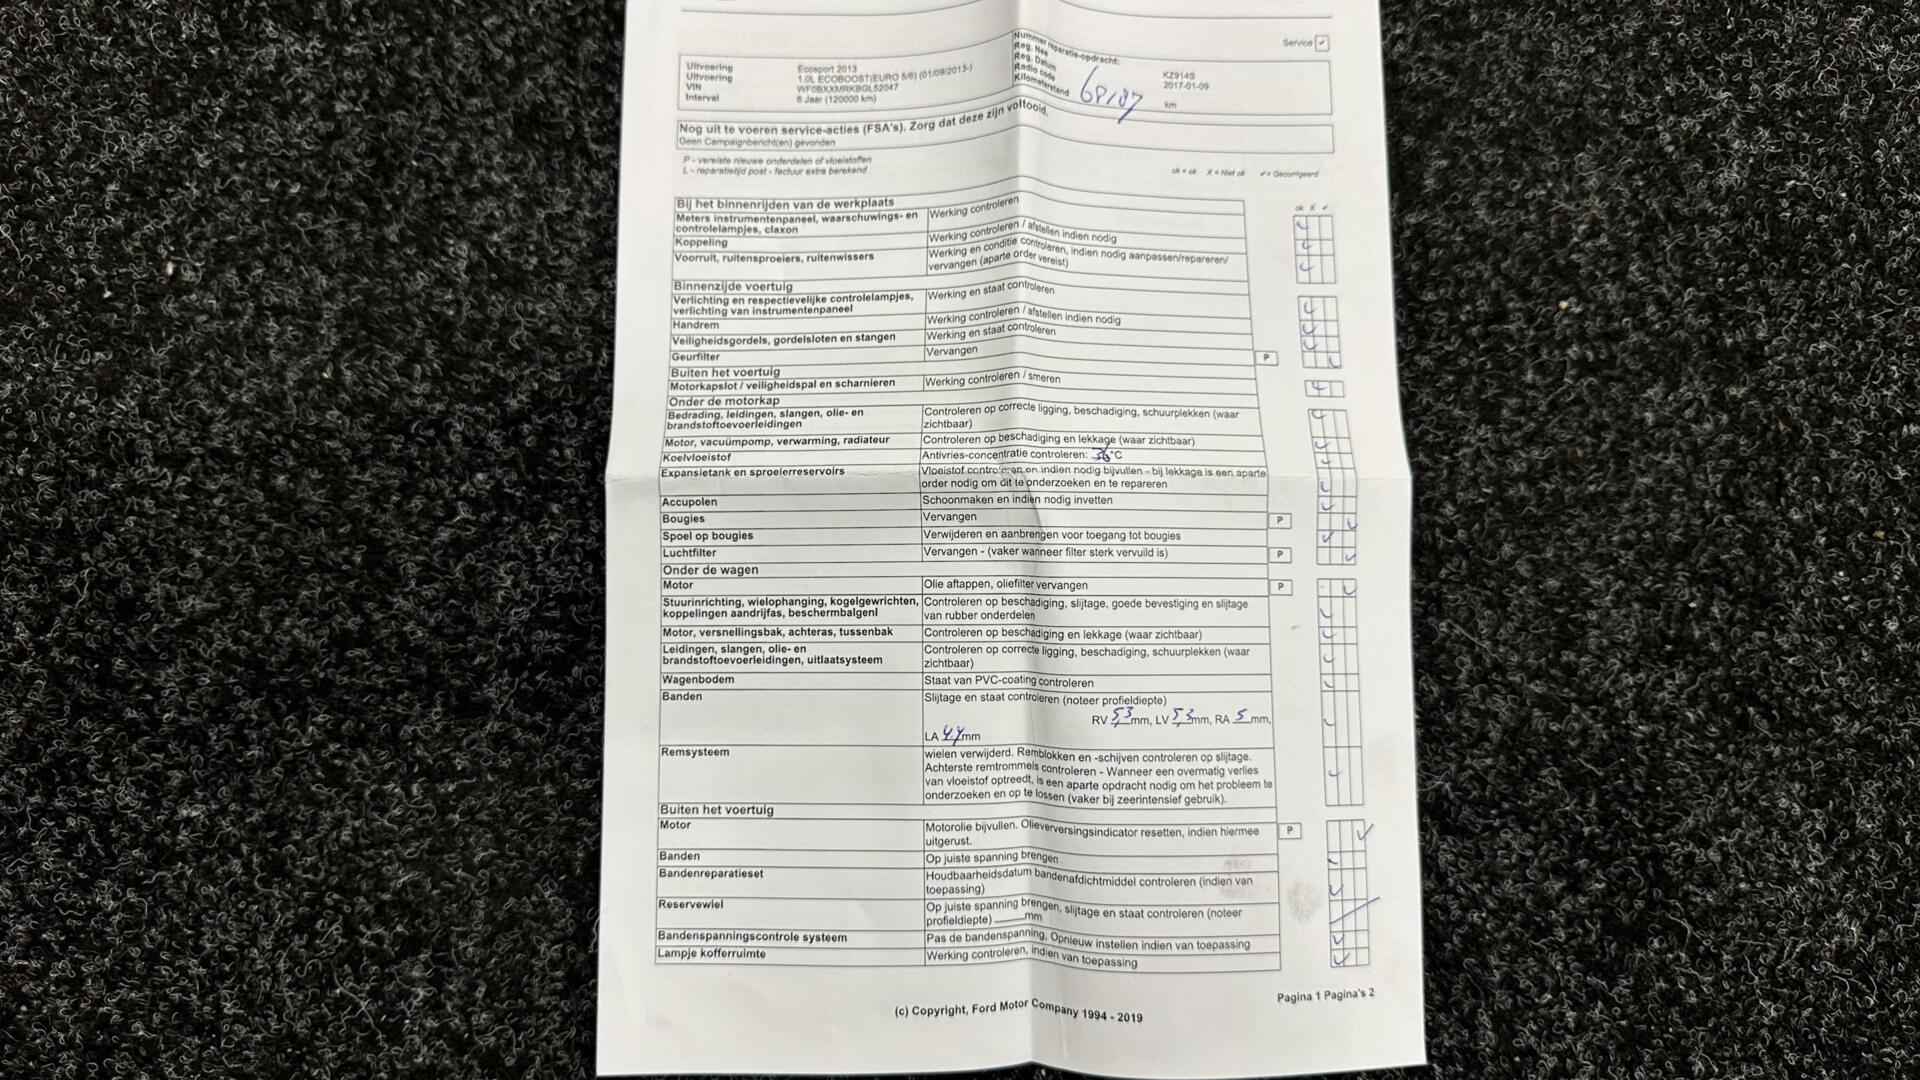 Service
Uitvoering Ecosport 2013
Uitvoering 1.0L ECOBOOST(EURO 5/6) (01/09/2013-)
VIN WF0BXXMRKBGL52047
Interval 6 Jaar (120000 km)
Nummer reparatie-opdracht:
Reg. Nee KZ914S
Reg. Datum 2017-01-09
Radio code
Kilometerstand km
Nog uit te voeren service-acties (FSA's). Zorg dat deze zijn voltooid.
Geen Campaignbericht(en) gevonden
P - vereiste nieuwe onderdelen of vloeistoffen
L - reparatietijd post - factuur extra berekend
ok = ok X = Niet ok ✓= Gecorrigeerd
ok X ✓
Bij het binnenrijden van de werkplaats
Meters instrumentenpaneel, waarschuwings- en Werking controleren
controlelampjes, claxon
Koppeling Werking controleren / afstellen indien nodig
Voorruit, ruitensproeiers, ruitenwissers Werking en conditie controleren, indien nodig aanpassen/repareren/
vervangen (aparte order vereist)
Binnenzijde voertuig
Verlichting en respectievelijke controlelampjes, Werking en staat controleren
verlichting van instrumentenpaneel
Handrem Werking controleren / afstellen indien nodig
Veiligheidsgordels, gordelsloten en stangen Werking en staat controleren
Geurfilter Vervangen P
Buiten het voertuig
Motorkapslot / veiligheidspal en scharnieren Werking controleren / smeren
Onder de motorkap
Bedrading, leidingen, slangen, olie- en Controleren op correcte ligging, beschadiging, schuurplekken (waar
brandstoftoevoerleidingen zichtbaar)
Motor, vacuümpomp, verwarming, radiateur Controleren op beschadiging en lekkage (waar zichtbaar)
Koelvloeistof Antivries-concentratie controleren: 36°C
Expansietank en sproeierreservoirs Vloeistof controleren en indien nodig bijvullen - bij lekkage is een aparte
order nodig om dit te onderzoeken en te repareren
Accupolen Schoonmaken en indien nodig invetten
Bougies Vervangen P
Spoel op bougies Verwijderen en aanbrengen voor toegang tot bougies
Luchtfilter Vervangen - (vaker wanneer filter sterk vervuild is) P
Onder de wagen
Motor Olie aftappen, oliefilter vervangen P
Stuurinrichting, wielophanging, kogelgewrichten, Controleren op beschadiging, slijtage, goede bevestiging en slijtage
koppelingen aandrijfas, beschermbalgenl van rubber onderdelen
Motor, versnellingsbak, achteras, tussenbak Controleren op beschadiging en lekkage (waar zichtbaar)
Leidingen, slangen, olie- en Controleren op correcte ligging, beschadiging, schuurplekken (waar
brandstoftoevoerleidingen, uitlaatsysteem zichtbaar)
Wagenbodem Staat van PVC-coating controleren
Banden Slijtage en staat controleren (noteer profieldiepte)
RV 5,3mm, LV 5,3mm, RA 5mm,
LA 4,4mm
Remsysteem wielen verwijderd. Remblokken en -schijven controleren op slijtage.
Achterste remtrommels controleren - Wanneer een overmatig verlies
van vloeistof optreedt, is een aparte opdracht nodig om het probleem te
onderzoeken en op te lossen (vaker bij zeerintensief gebruik).
Buiten het voertuig
Motor Motorolie bijvullen. Olieverversingsindicator resetten, indien hiermee P
uitgerust.
Banden Op juiste spanning brengen
Bandenreparatieset Houdbaarheidsdatum bandenafdichtmiddel controleren (indien van
toepassing)
Reservewiel Op juiste spanning brengen, slijtage en staat controleren (noteer
profieldiepte) ____mm
Bandenspanningscontrole systeem Pas de bandenspanning, Opnieuw instellen indien van toepassing
Lampje kofferruimte Werking controleren, indien van toepassing
Pagina 1 Pagina's 2
(c) Copyright, Ford Motor Company 1994 - 2019